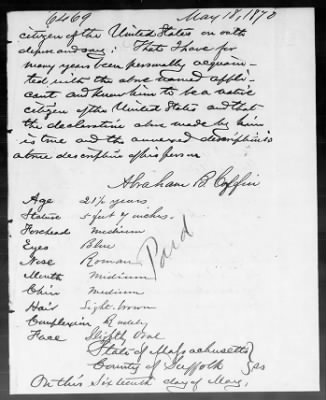 6469 May 18, 1870
citizen of the United States on oath
depose and say: That I have for
many years been personally acquain-
ted with the above named appli-
cant and know him to be a native
citizen of the United States and that
the declaration above made by him
is true and the annexed description is
a true description of his person
Abraham B. Coffin
Age 21½ years
Stature 5 feet 7 inches.
Forehead Medium
Eyes Blue
Nose Roman
Mouth Medium
Chin Medium
Hair Light brown
Complexion Ruddy
Face Slightly Oval
Paid
State of Massachusetts
County of Suffolk } ss
On this Sixteenth day of May,